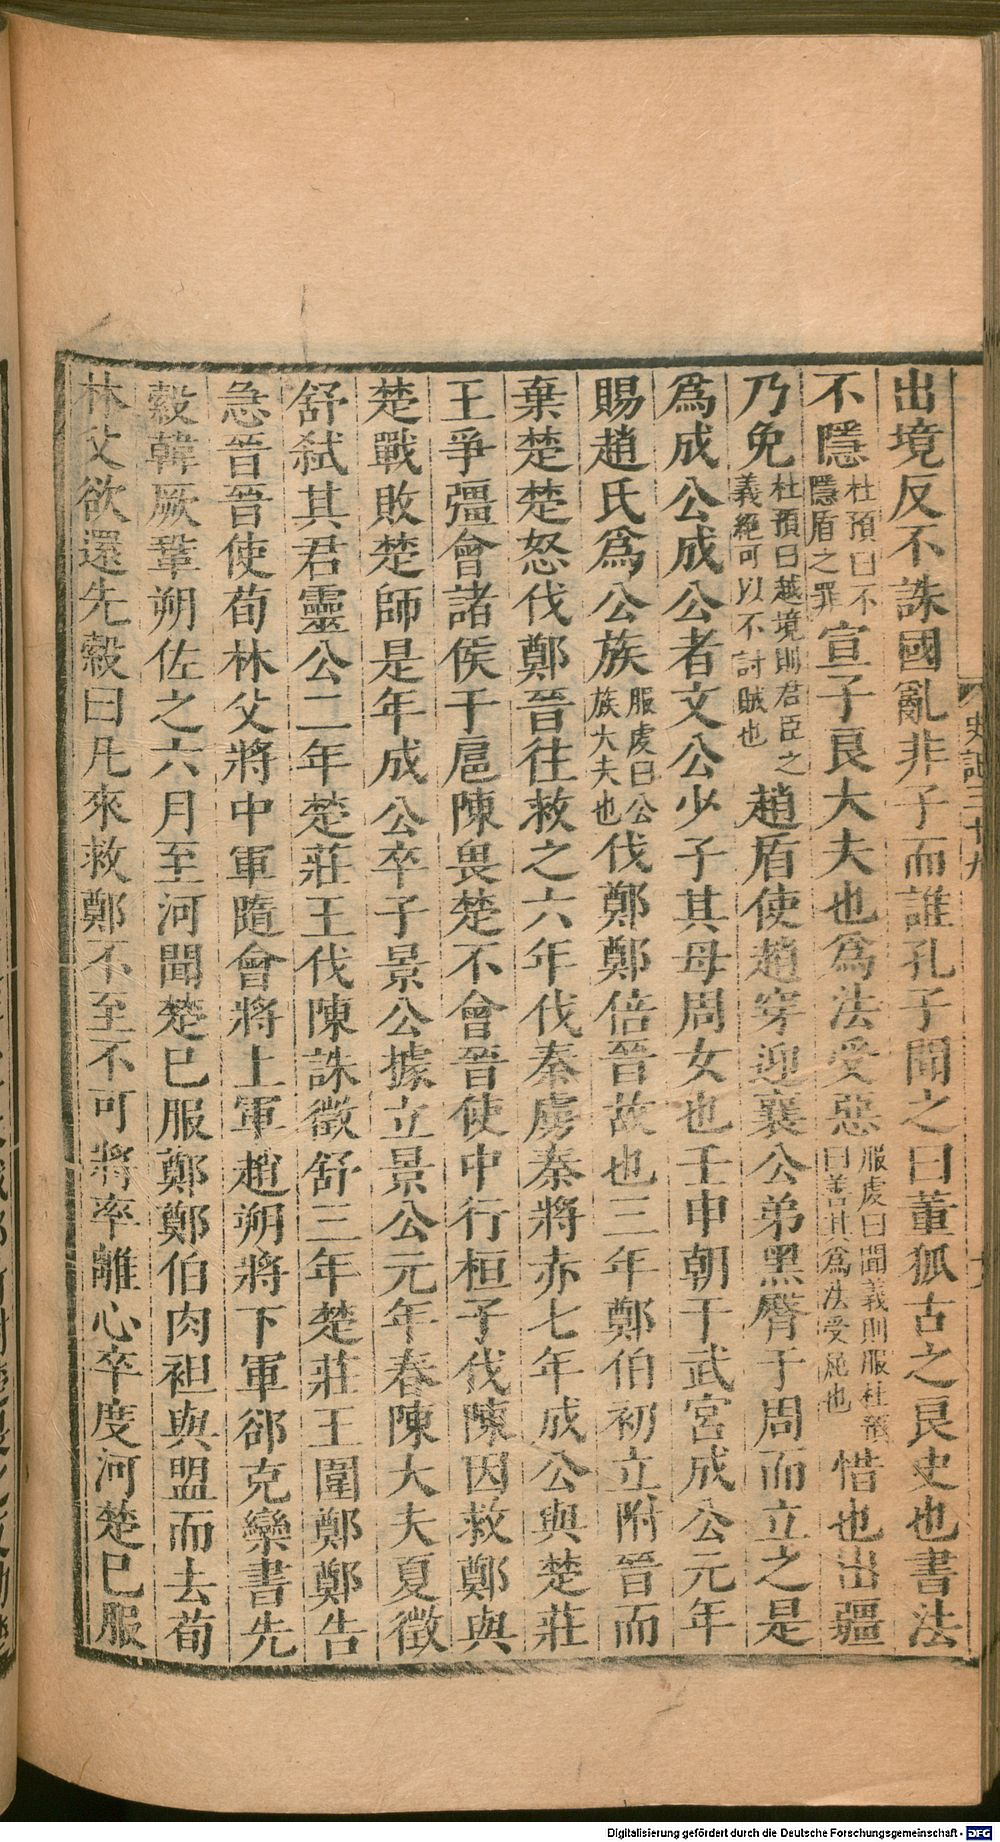 史記三十九
出境反不誅國亂非子而誰孔子聞之曰董狐古之良史也書法
不隱杜預曰不隱盾之罪宣子良大夫也爲法受惡服虔曰聞義則服杜預曰善其爲法受屈也惜也出疆
乃免杜預曰越境則君臣之義絕可以不討賊也趙盾使趙穿迎襄公弟黑臀于周而立之是
爲成公成公者文公少子其母周女也壬申朝于武宮成公元年
賜趙氏爲公族服虔曰公族大夫也伐鄭鄭倍晉故也三年鄭伯初立附晉而
棄楚楚怒伐鄭晉往救之六年伐秦虜秦將赤七年成公與楚莊
王爭彊會諸侯于扈陳畏楚不會晉使中行桓子伐陳因救鄭與
楚戰敗楚師是年成公卒子景公據立景公元年春陳大夫夏徵
舒弒其君靈公二年楚莊王伐陳誅徵舒三年楚莊王圍鄭鄭告
急晉晉使荀林父將中軍隨會將上軍趙朔將下軍郤克欒書先
縠韓厥鞏朔佐之六月至河聞楚已服鄭鄭伯肉袒與盟而去荀
林父欲還先縠曰凡來救鄭不至不可將率離心卒度河楚已服
Digitalisierung gefördert durch die Deutsche Forschungsgemeinschaft - DFG